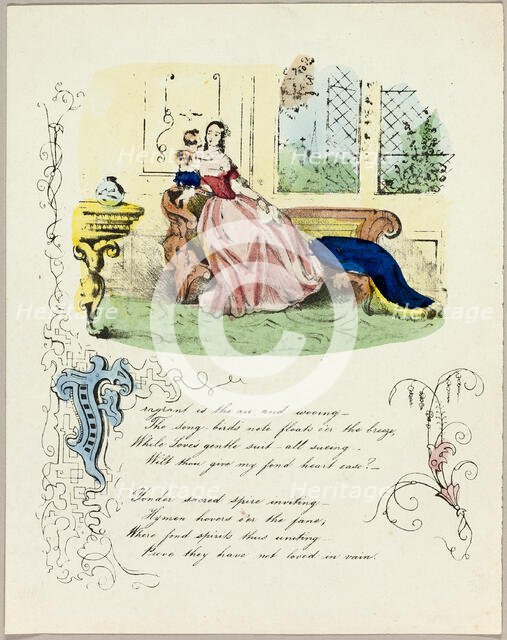 Heritage Heritage Heritage
Heritage Heritage Heritage
Heritage Heritage Heritage
Fragrant is the air, and wooing—
The song-birds note floats o'er the breeze,
While Loves gentle suit—all sueing—
Wilt thou give my fond heart ease?—
Yonder sacred spire inviting—
Hymen hovers o'er the fane,
Where fond spirits thus uniting—
Prove they have not loved in vain.